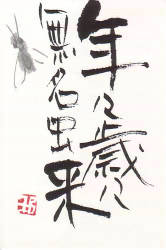 年々歳々
無名虫出来